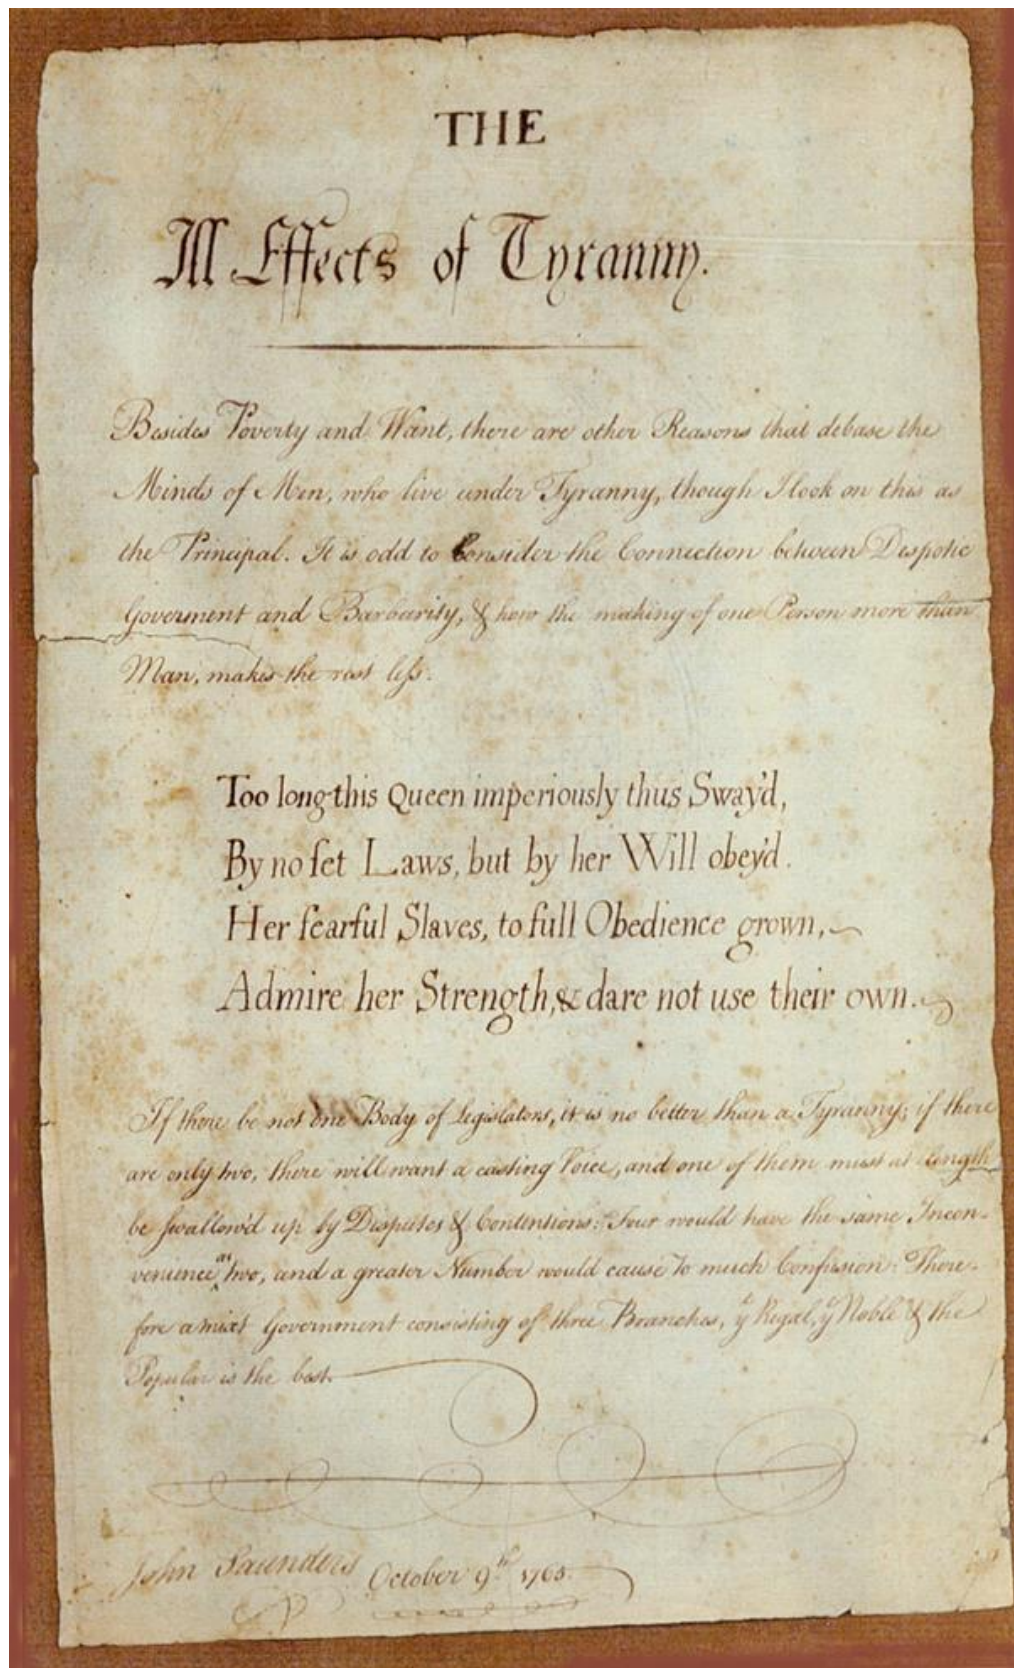 THE
Ill Effects of Tyranny.
Besides Poverty and Want, there are other Reasons that debase the
Minds of Men, who live under Tyranny, though I look on this as
the Principal. It is odd to Consider the Connection between Despotic
Goverment and Barbarity, & how the making of one Person more than
Man, makes the rest leſs.
Too long this Queen imperiously thus Sway'd,
By no ſet Laws, but by her Will obey'd.
Her fearful Slaves, to full Obedience grown,
Admire her Strength, & dare not use their own.
If there be not one Body of Legislators, it is no better than a Tyranny; if there
are only two, there will want a casting Voice, and one of them must at length
be ſwallow'd up by Disputes & Contentions: Four would have the same Incon-
venience as two, and a greater Number would cause to much Confusion: There-
fore a mixt Government consisting of three Branches, yᵉ Regal, yᵉ Noble & the
Popular is the best.
John Saunders October 9th